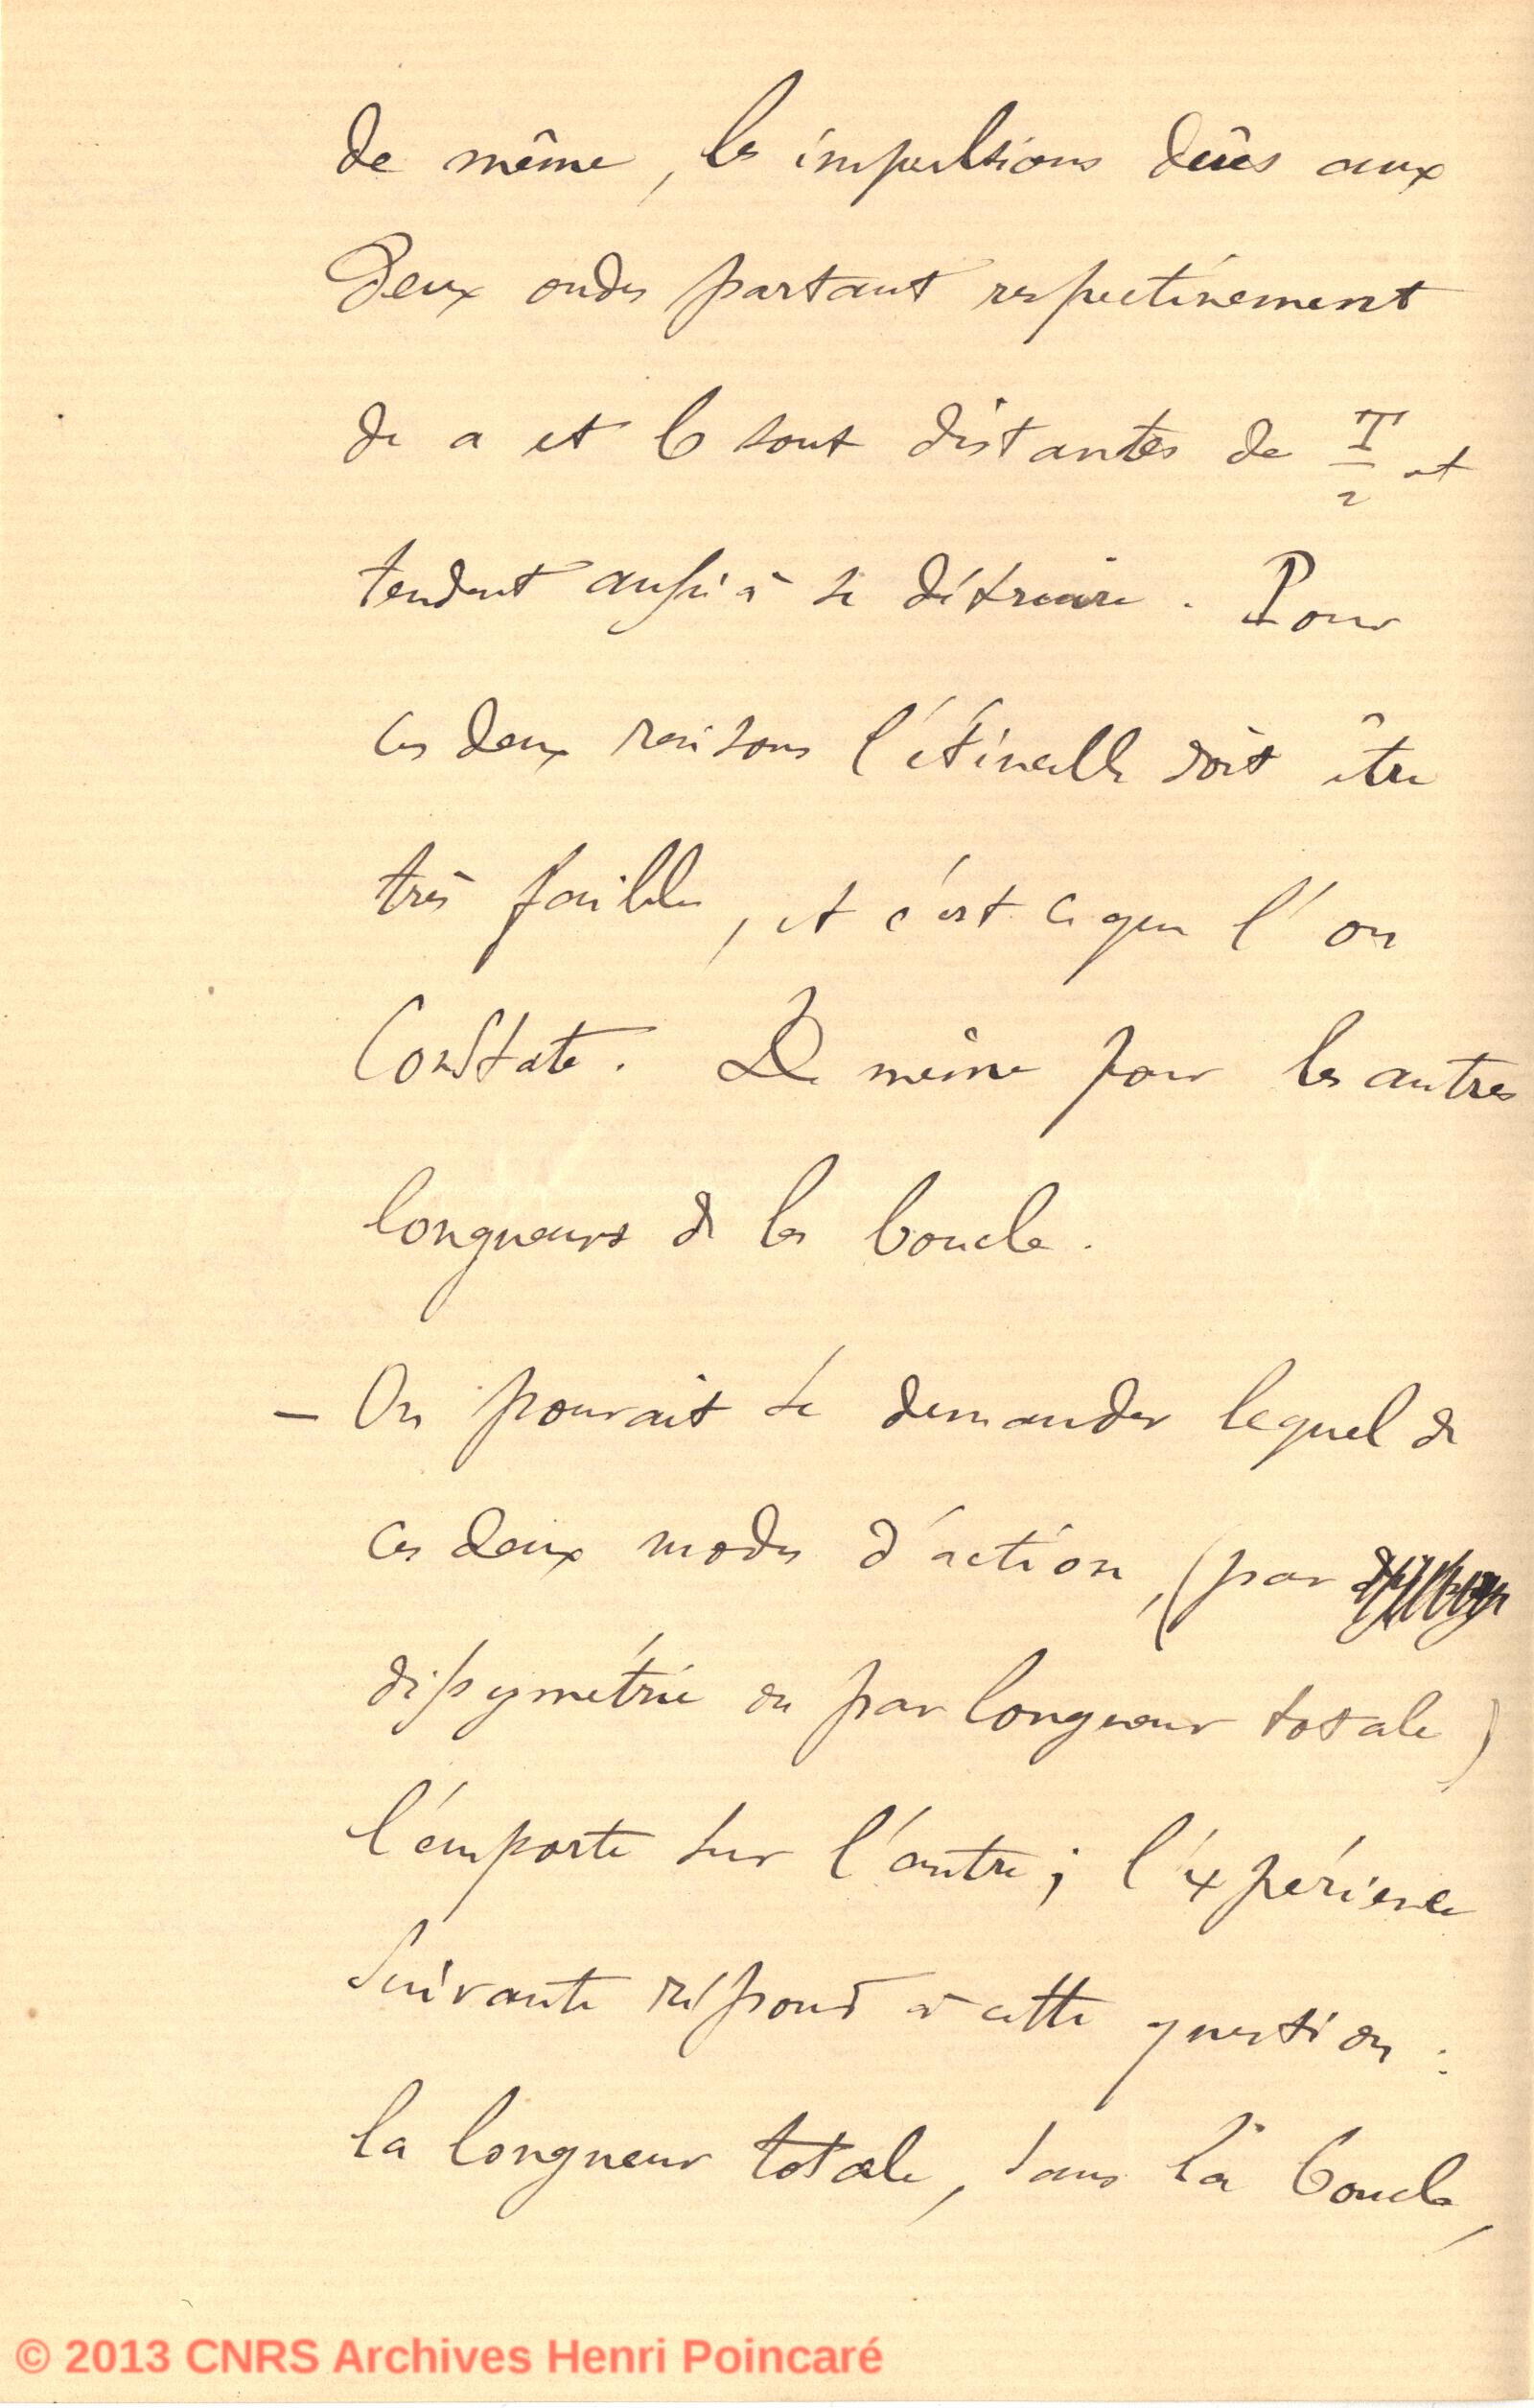 de même, les impulsions dûes aux
Deux ondes partant respectivement
de a et b sont distantes de T/2 et
tendent aussi à se détruire. Pour
ces deux raisons l'étincelle doit être
très faible, et c'est ce que l'on
Constate. De même pour les autres
longueurs de la boucle.
– On pourrait se demander lequel de
ces deux modes d'action, (par
dissymétrie ou par longueur totale)
l'emporte sur l'autre; l'expérience
suivante répond à cette question :
la longueur totale, sans la boucle,
© 2013 CNRS Archives Henri Poincaré